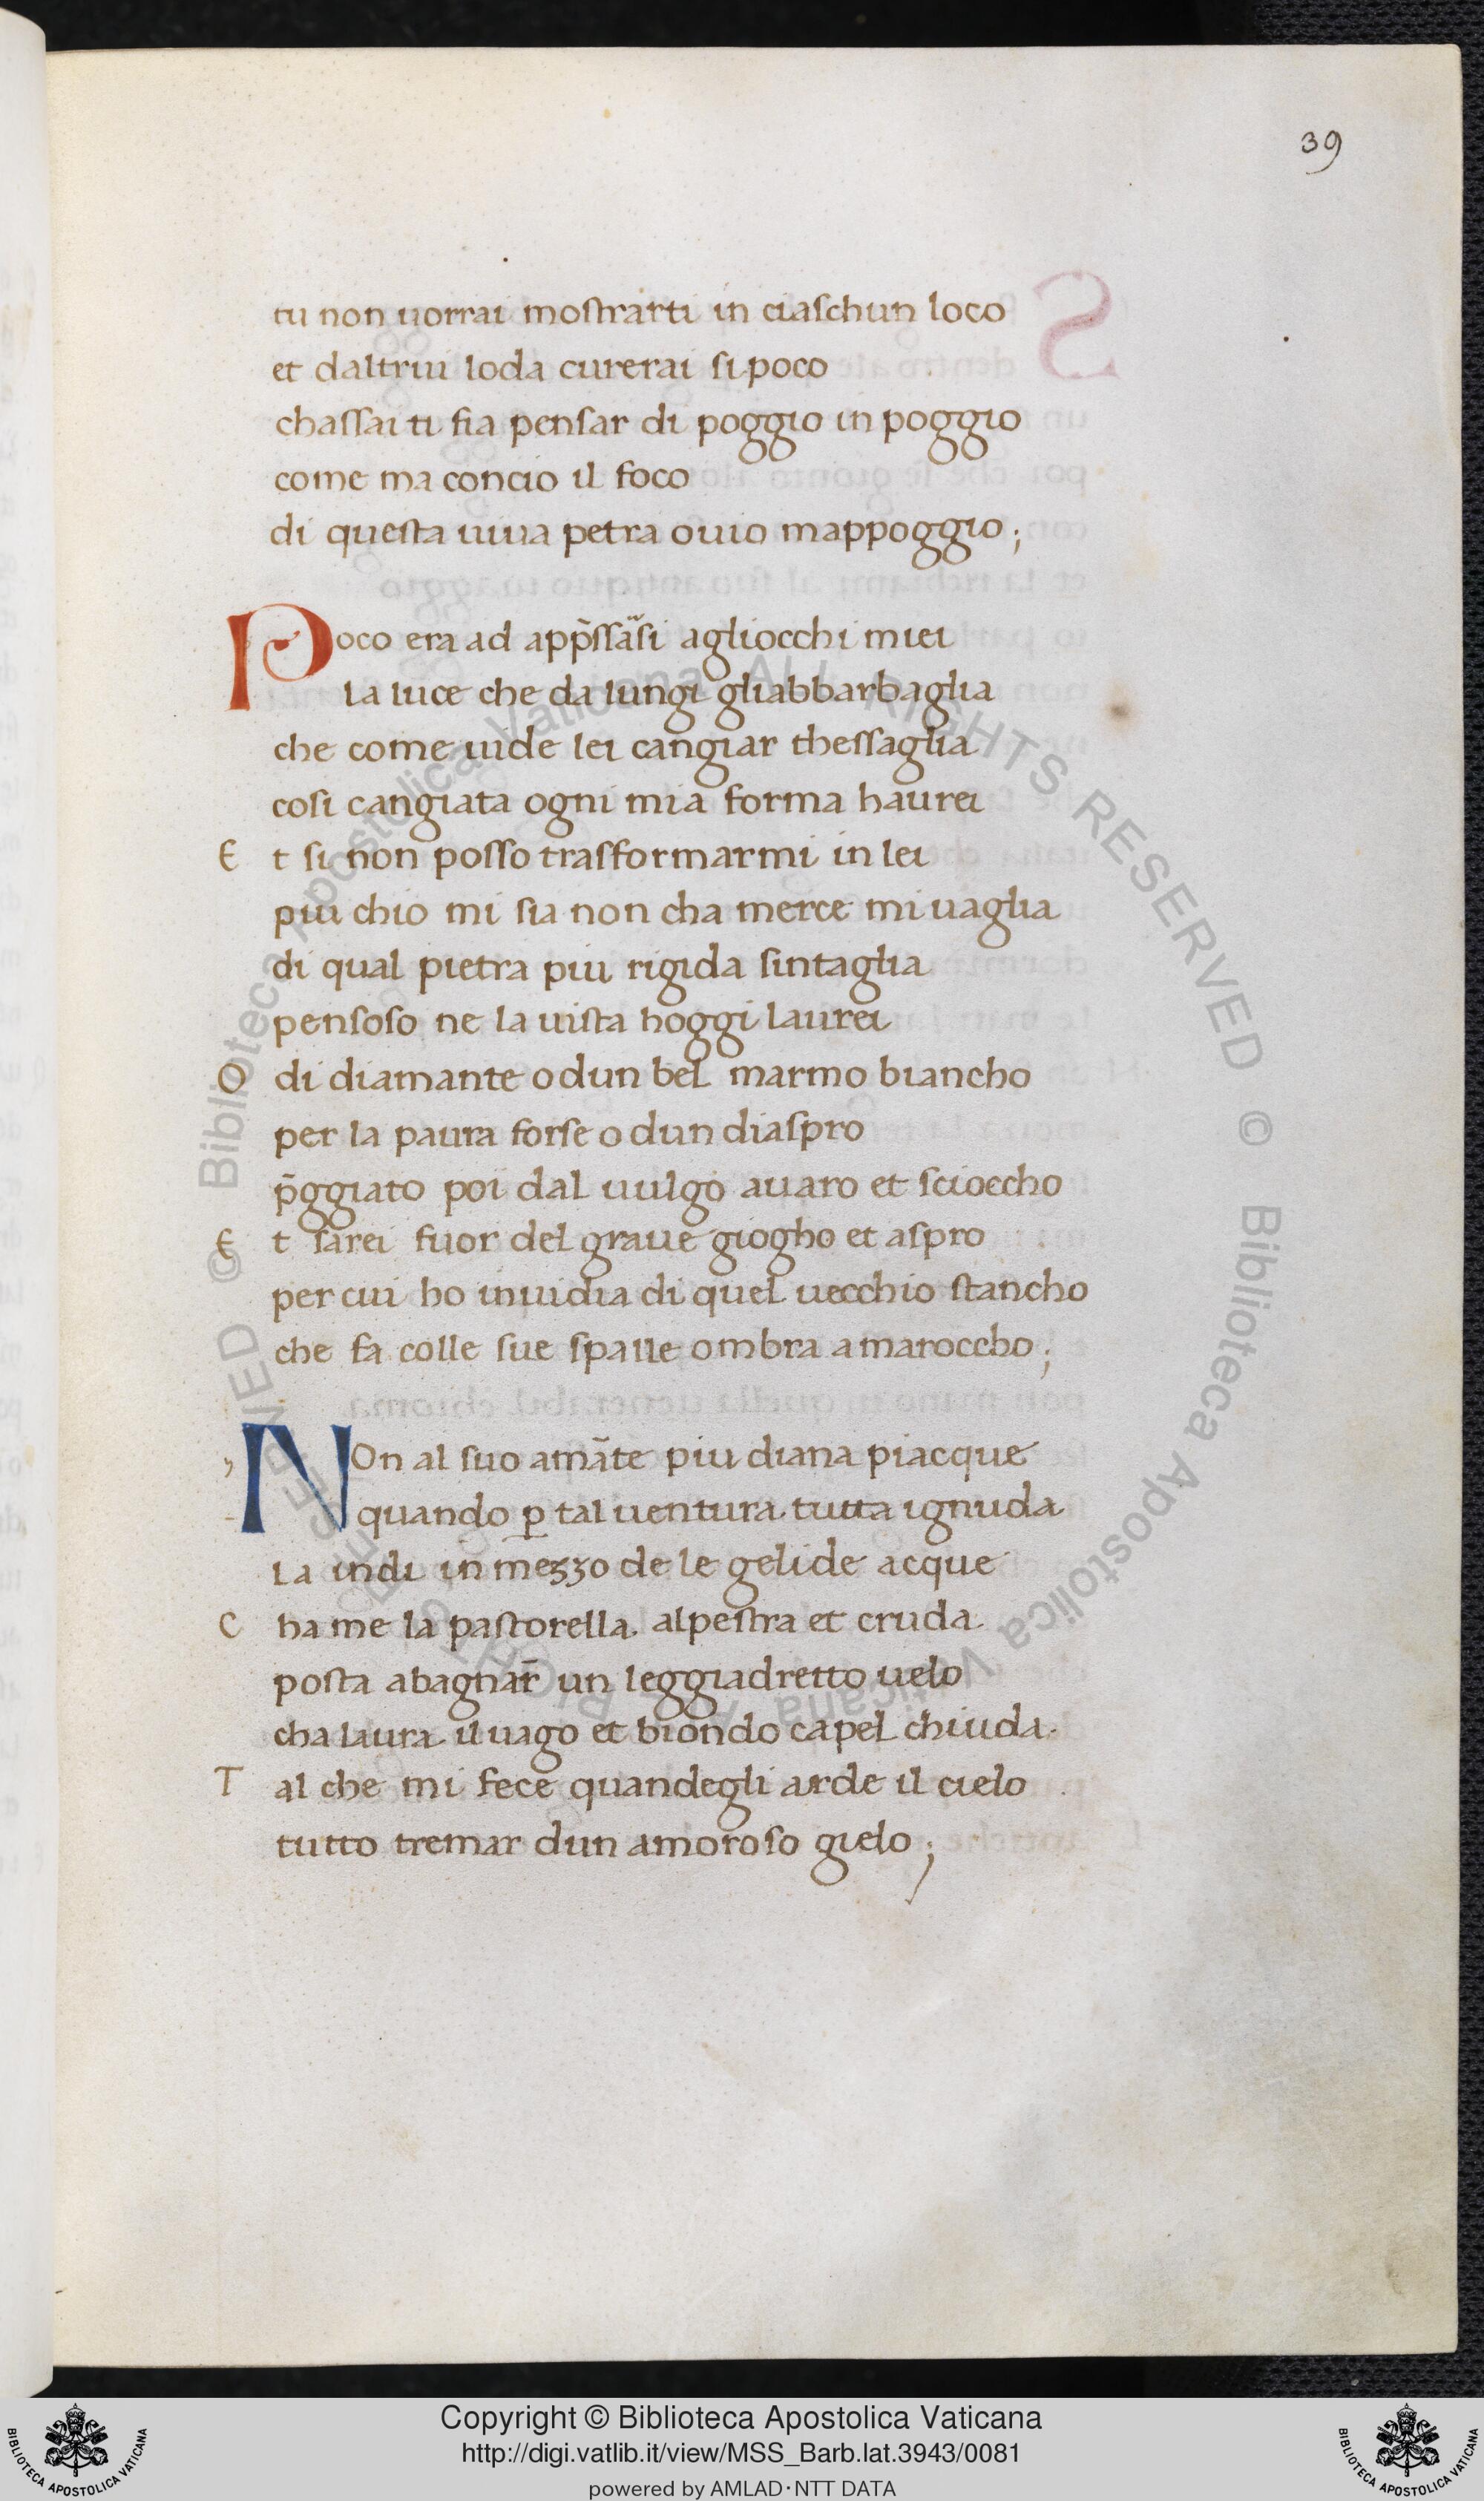 39
tu non uorrai mostrarti in ciaschun loco
et daltrui loda curerai si poco
chassai ti fia pensar di poggio in poggio
come ma concio il foco
di questa uiua petra ouio mappoggio;
Poco era ad app̄ssāsi agliocchi miei
la luce che da lungi gliabbarbaglia
che come uide lei cangiar thessaglia
cosi cangiata ogni mia forma haurei
Et si non posso trasformarmi in lei
piu chio mi sia non cha merce mi uaglia
di qual pietra piu rigida sintaglia
pensoso ne la uista hoggi laurei
O di diamante o dun bel marmo biancho
per la paura forse o dun diaspro
p̄ggiato poi dal uulgo auaro et scioccho
Et sarei fuor del graue giogho et aspro
per cui ho inuidia di quel uecchio stancho
che fa colle sue spalle ombra a maroccho;
NOn al suo amāte piu diana piacque
quando ꝑ tal uentura tutta ignuda
La uidi in mezzo de le gelide acque
Cha me la pastorella alpestra et cruda
posta abagnar̄ un leggiadretto uelo
cha laura il uago et biondo capel chiuda.
Tal che mi fece quandegli arde il cielo
tutto tremar dun amoroso gielo;
© Biblioteca Apostolica Vaticana ALL RIGHTS RESERVED © Biblioteca Apostolica Vaticana ALL RIGHTS RESERVED
Copyright © Biblioteca Apostolica Vaticana
http://digi.vatlib.it/view/MSS_Barb.lat.3943/0081
powered by AMLAD·NTT DATA
BIBLIOTECA APOSTOLICA VATICANA
BIBLIOTECA APOSTOLICA VATICANA